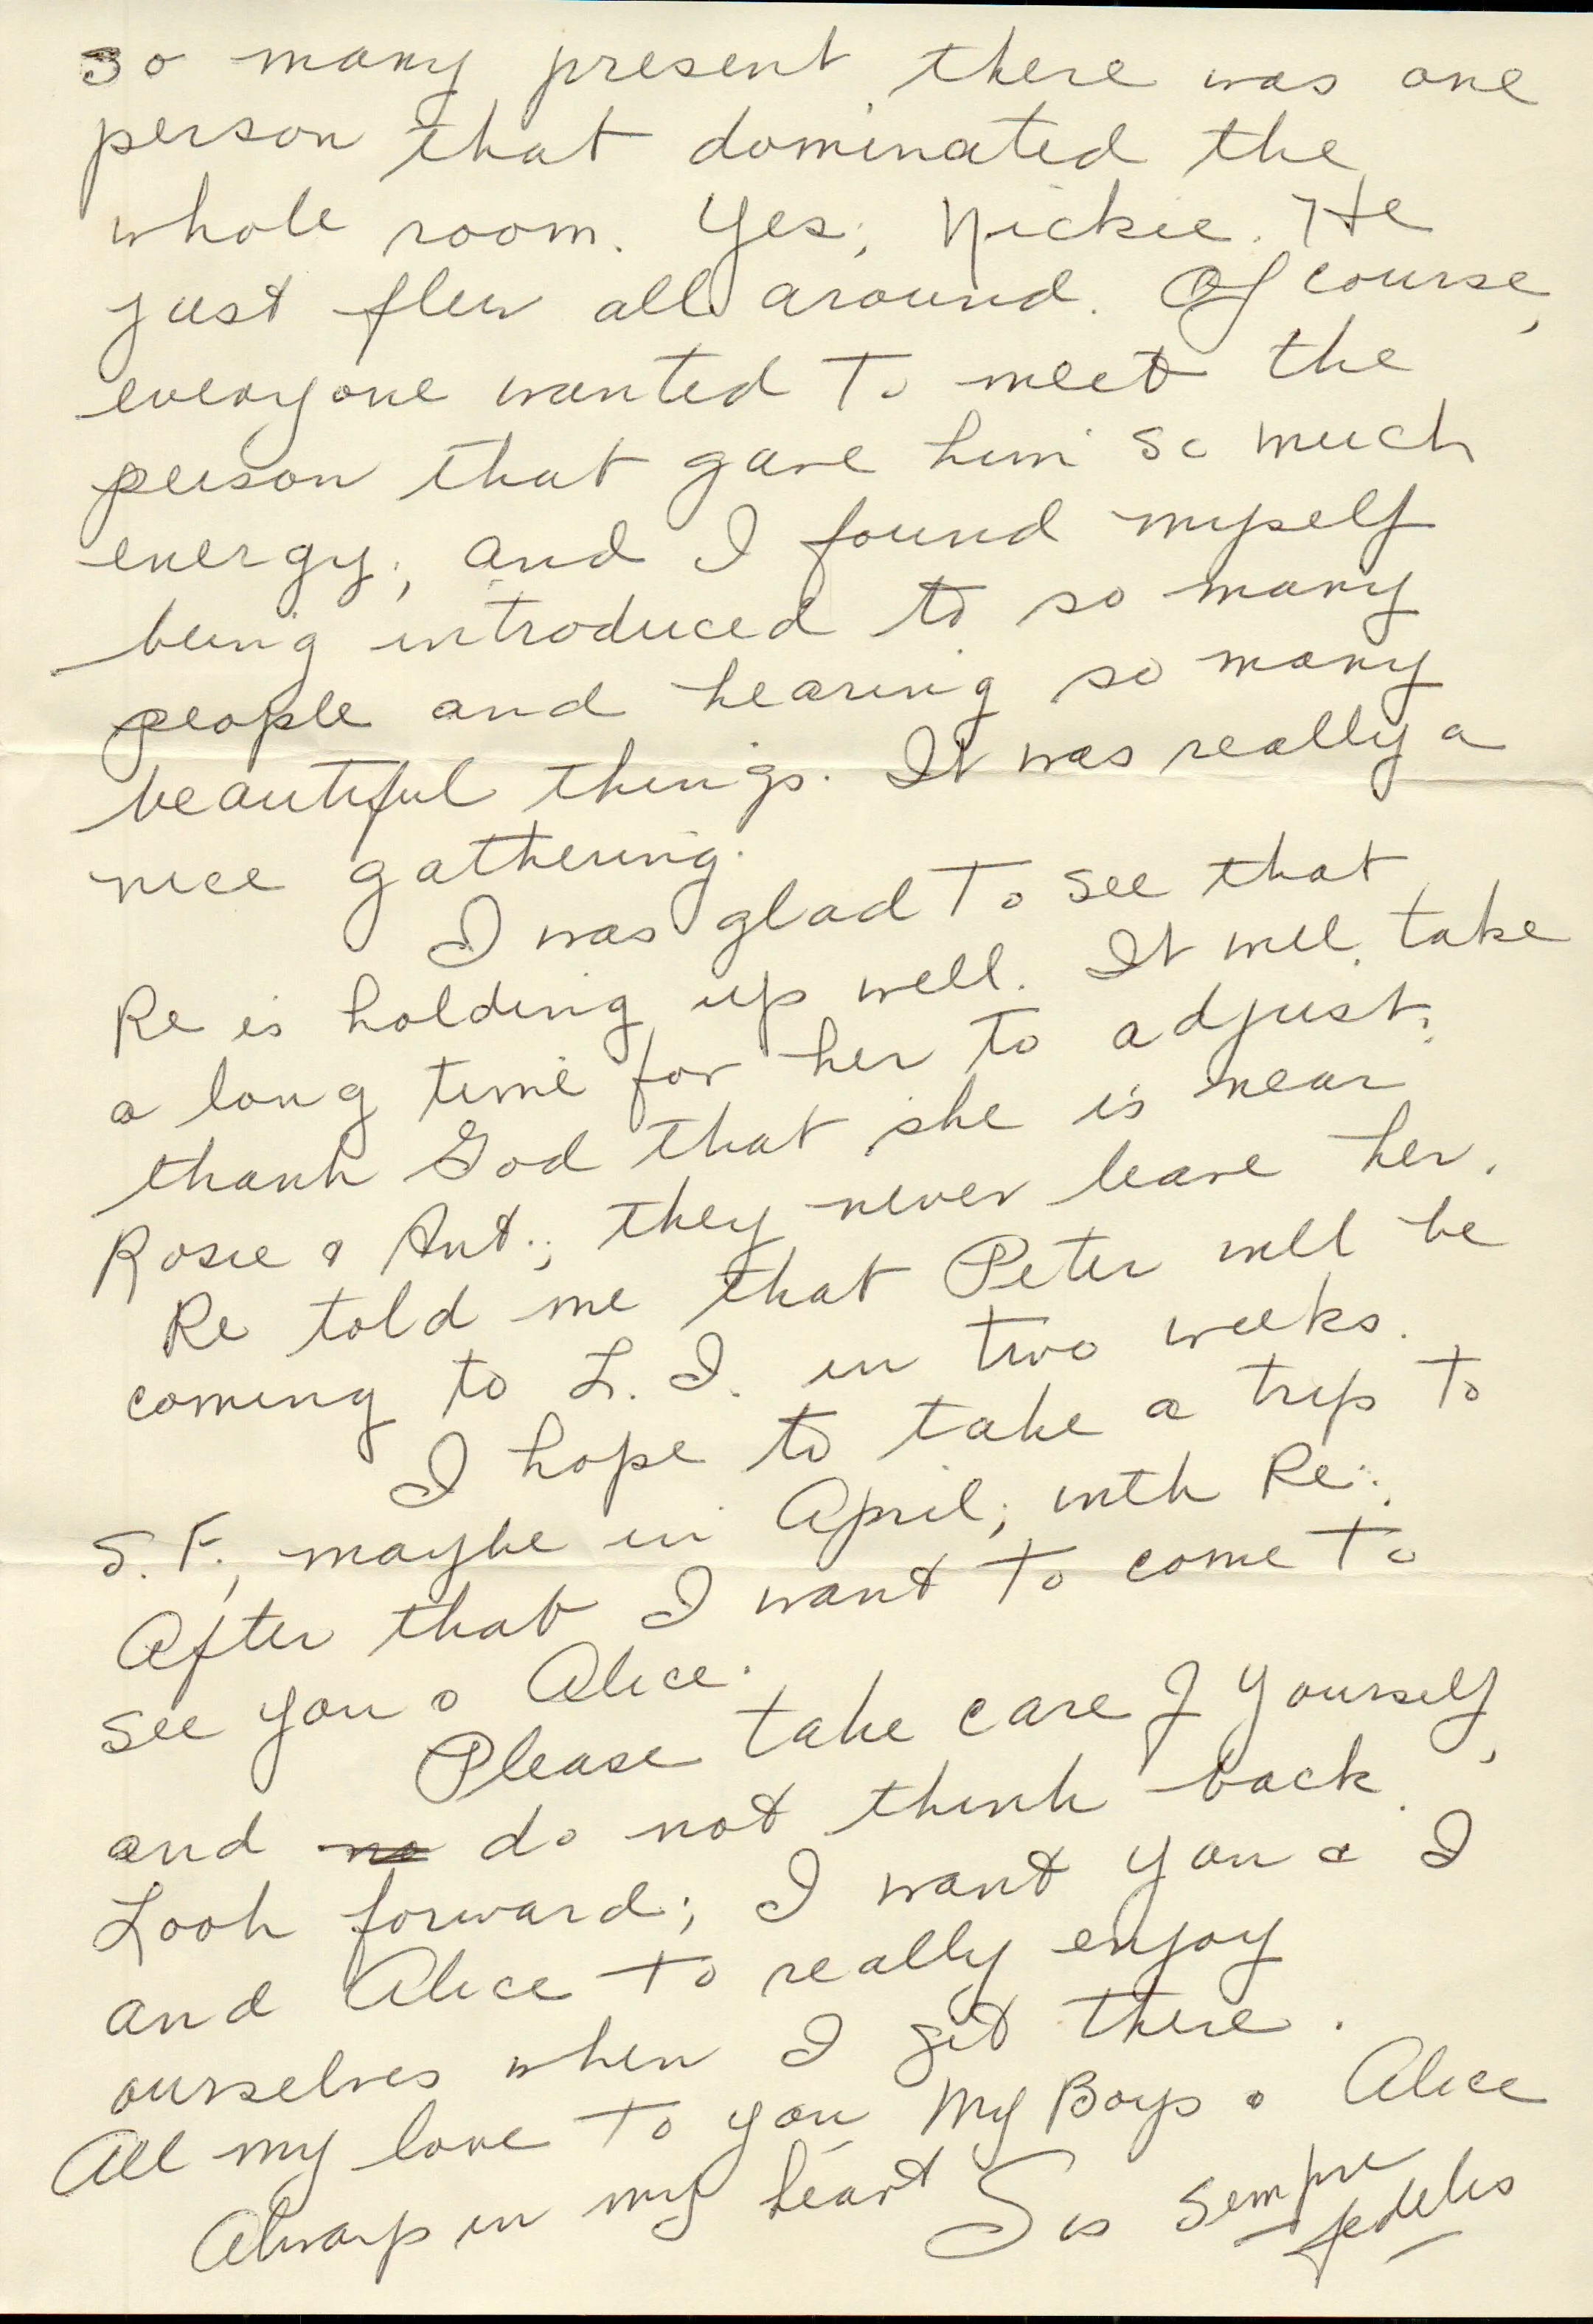 so many present there was one
person that dominated the
whole room. Yes, Nickie. He
just flew all around. Of course,
everyone wanted to meet the
person that gave him so much
energy, and I found myself
being introduced to so many
people and hearing so many
beautiful things. It was really a
nice gathering.
I was glad to see that
Re is holding up well. It will take
a long time for her to adjust.
thank God that she is near
Rosie & Ant.; they never leave her.
Re told me that Peter will be
coming to L. I. in two weeks.
I hope to take a trip to
S. F., maybe in April, with Re.
After that I want to come to
see you & Alice.
Please take care of yourself,
and no do not think back.
Look forward; I want you & I
and Alice to really enjoy
ourselves when I get there.
All my love to you My Boys & Alice
Always in my heart Sis Sempre
fedelis